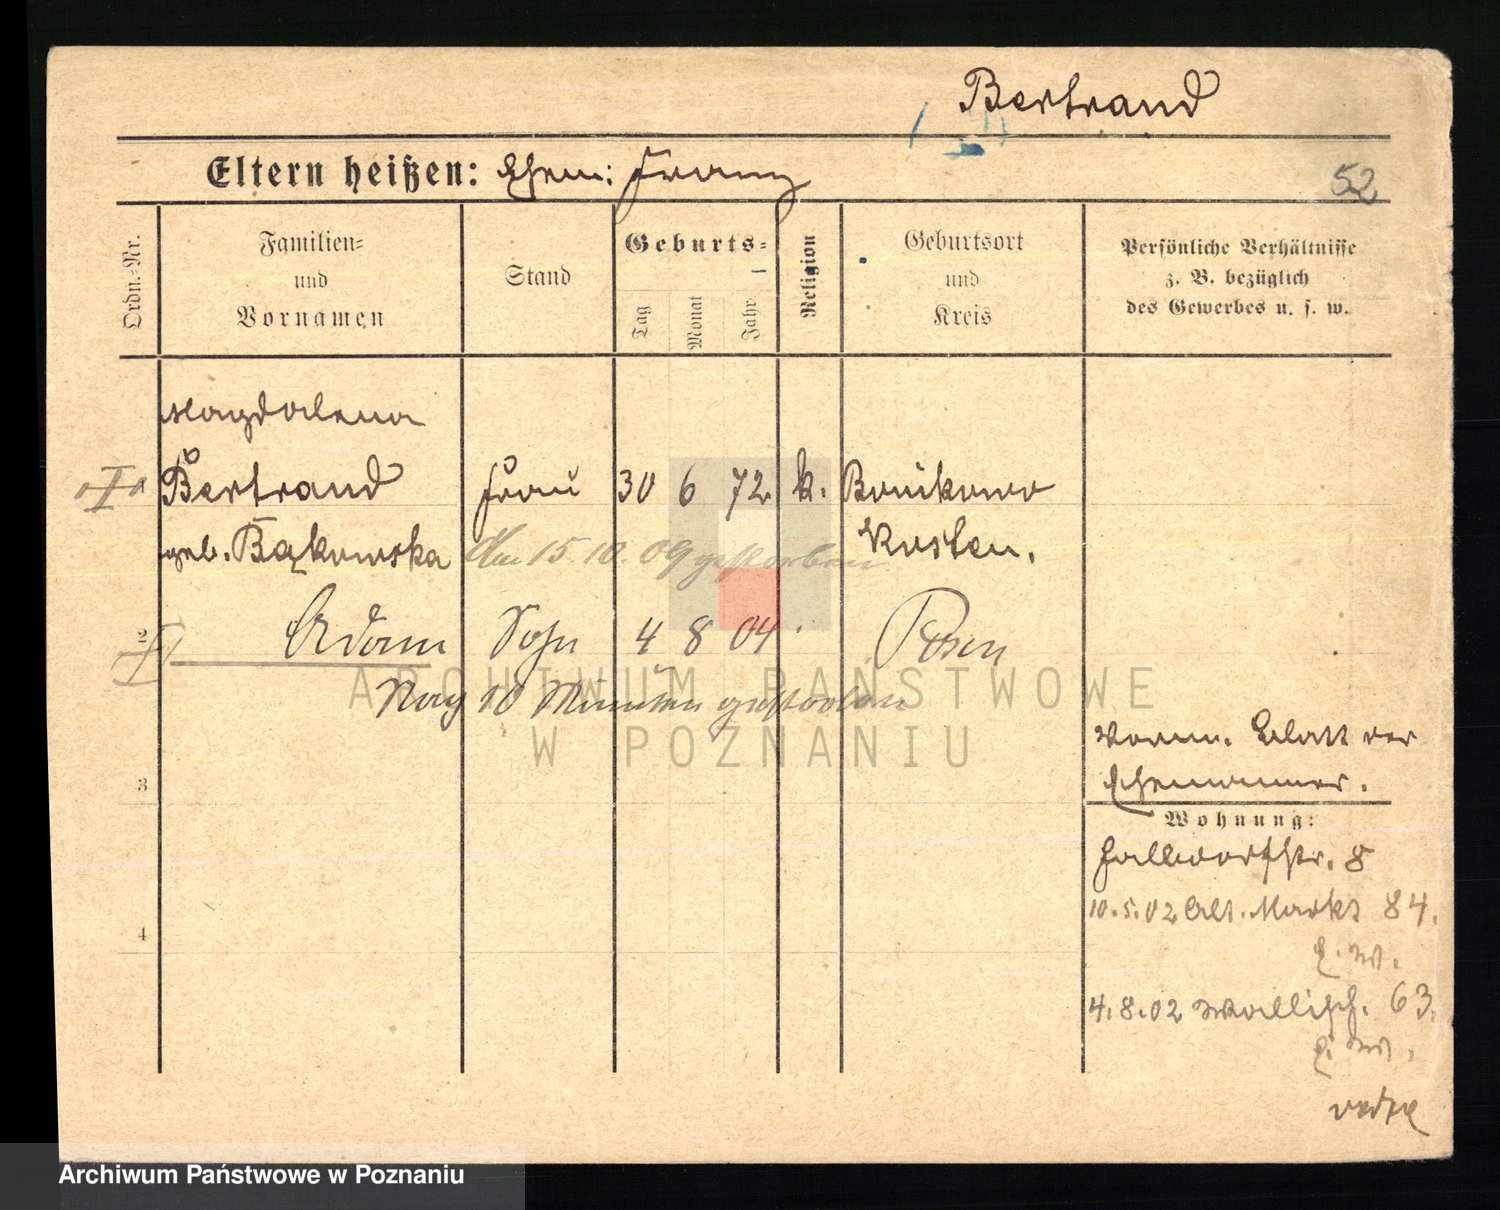 Bertrand
Eltern heißen: Ehem: Franz
52
Ordn.-Nr.
Familien-
und
Vornamen
Stand
Geburts-
Tag
Monat
Jahr
Religion
Geburtsort
und
Kreis
Persönliche Verhältnisse
z. B. bezüglich
des Gewerbes u. s. w.
Magdalena
Bertrand Frau 30 6 72 k. Bonikowo
geb. Bąkowska Kosten.
Am 15.10.09 gestorben
2 Adam Sohn 4 8 04 Posen
Nach 10 Minuten gestorben
ARCHIWUM PAŃSTWOWE
W POZNANIU
Vorm. Blatt des
Ehemannes.
3
Wohnung:
Halbdorfstr. 8
10.5.02 Alt. Markt 84.
4
4.8.02 Wallisch. 63.
Archiwum Państwowe w Poznaniu